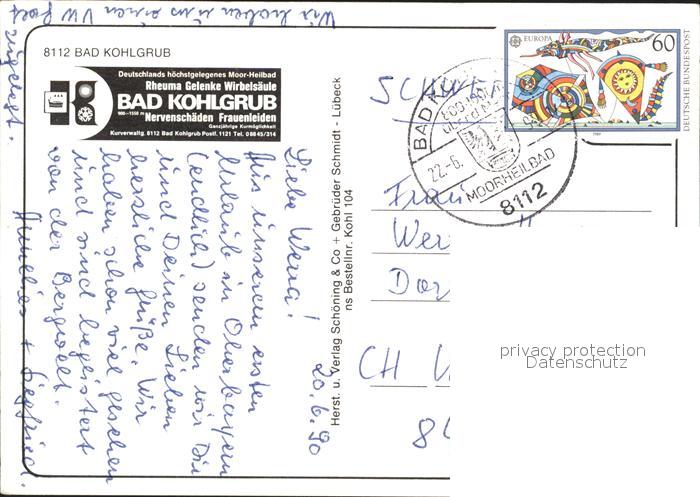 8112 BAD KOHLGRUB
Deutschlands höchstgelegenes Moor-Heilbad
Rheuma Gelenke Wirbelsäule
BAD KOHLGRUB
900—1550 m Nervenschäden Frauenleiden
Ganzjährige Kurmöglichkeit
Kurverwaltg. 8112 Bad Kohlgrub Postf. 1121 Tel. 0 88 45/314
20.6.90
Liebe Werra!
Aus unserem ersten
Urlaub in Oberbayern
(endlich) senden wir Dir
und Deinen Lieben
herzliche Grüße. Wir
haben schon viel gesehen
und sind begeistert
von der Bergwelt.
Annelies + Siegfried.
Wir haben uns einen VW Golf
zugelegt.
Herst. u. Verlag Schöning & Co + Gebrüder Schmidt - Lübeck
ns Bestellnr. Kohl 104
EUROPA
60
DEUTSCHE BUNDESPOST
1989
BAD K
22.-6.
MOORHEILBAD
8112
SCHWEIZ
Frau
Wer
Dor
CH
8
privacy protection
Datenschutz